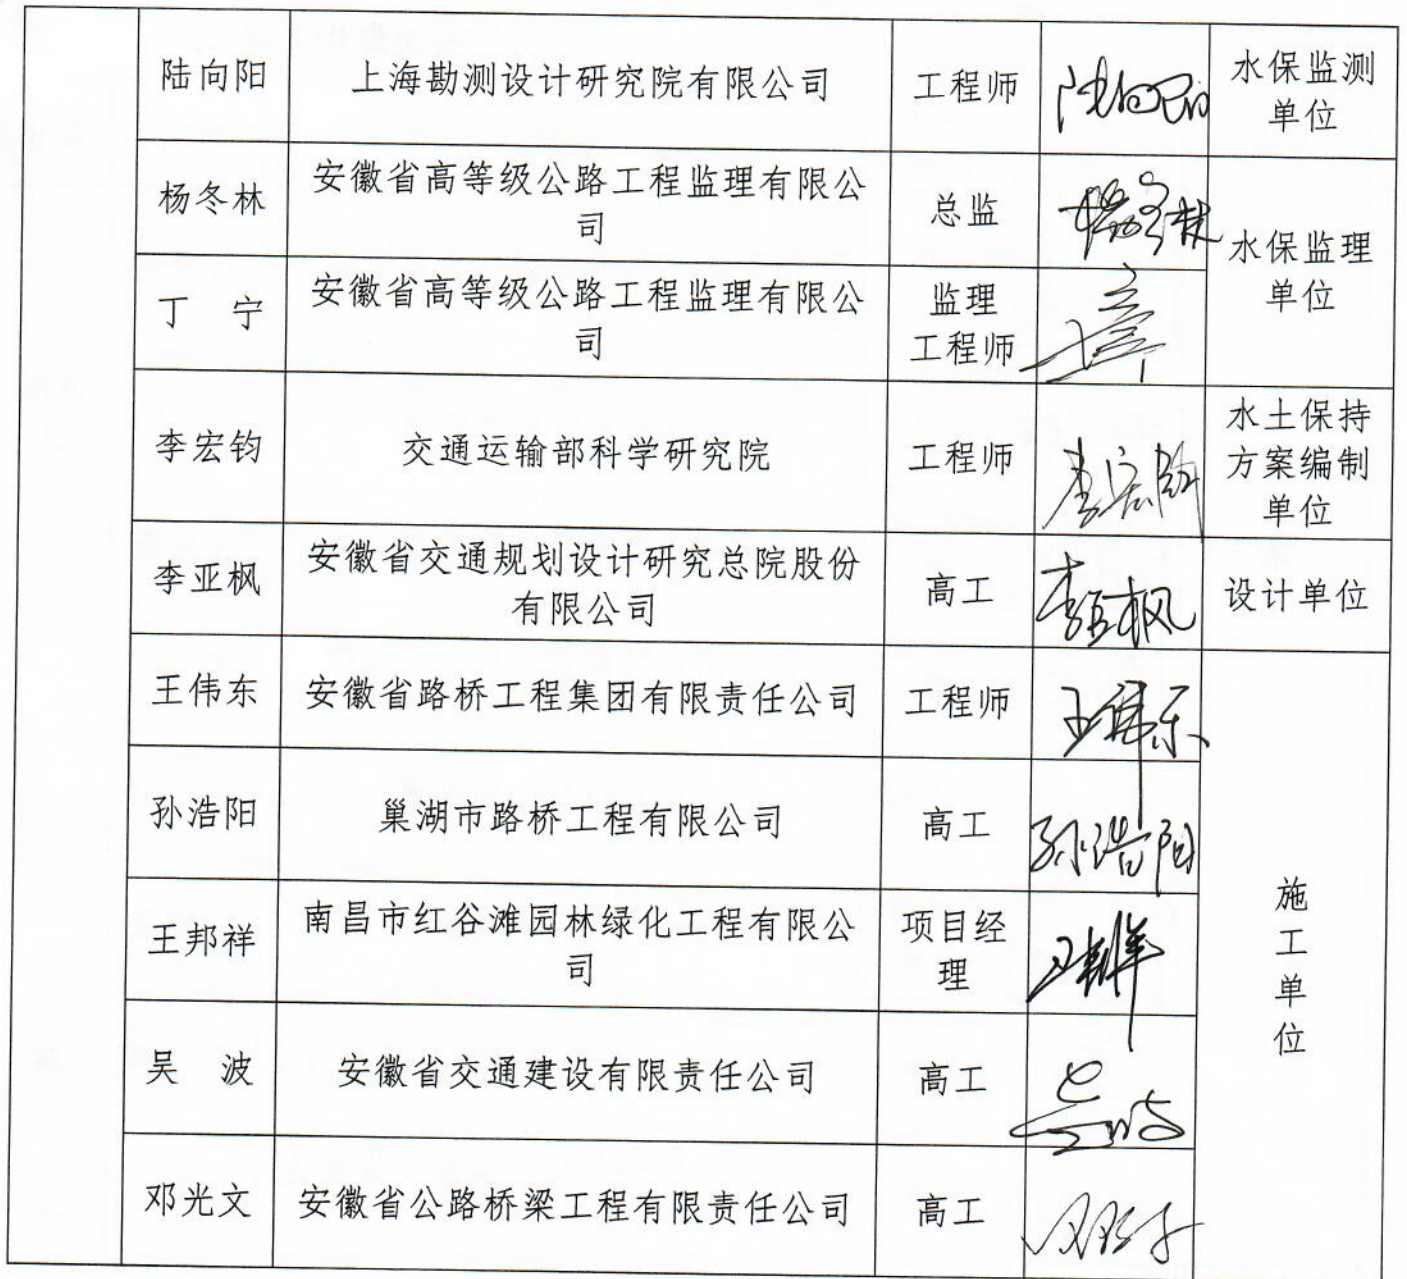 陆向阳 上海勘测设计研究院有限公司 工程师 陆向阳 水保监测
单位
杨冬林 安徽省高等级公路工程监理有限公
司 总监 杨冬林 水保监理
单位
丁 宁 安徽省高等级公路工程监理有限公
司 监理
工程师
李宏钧 交通运输部科学研究院 工程师 李宏钧 水土保持
方案编制
单位
李亚枫 安徽省交通规划设计研究总院股份
有限公司 高工 李亚枫 设计单位
王伟东 安徽省路桥工程集团有限责任公司 工程师 王伟东
孙浩阳 巢湖市路桥工程有限公司 高工 孙浩阳
王邦祥 南昌市红谷滩园林绿化工程有限公
司 项目经
理 王邦祥
施
工
单
位
吴 波 安徽省交通建设有限责任公司 高工 吴波
邓光文 安徽省公路桥梁工程有限责任公司 高工